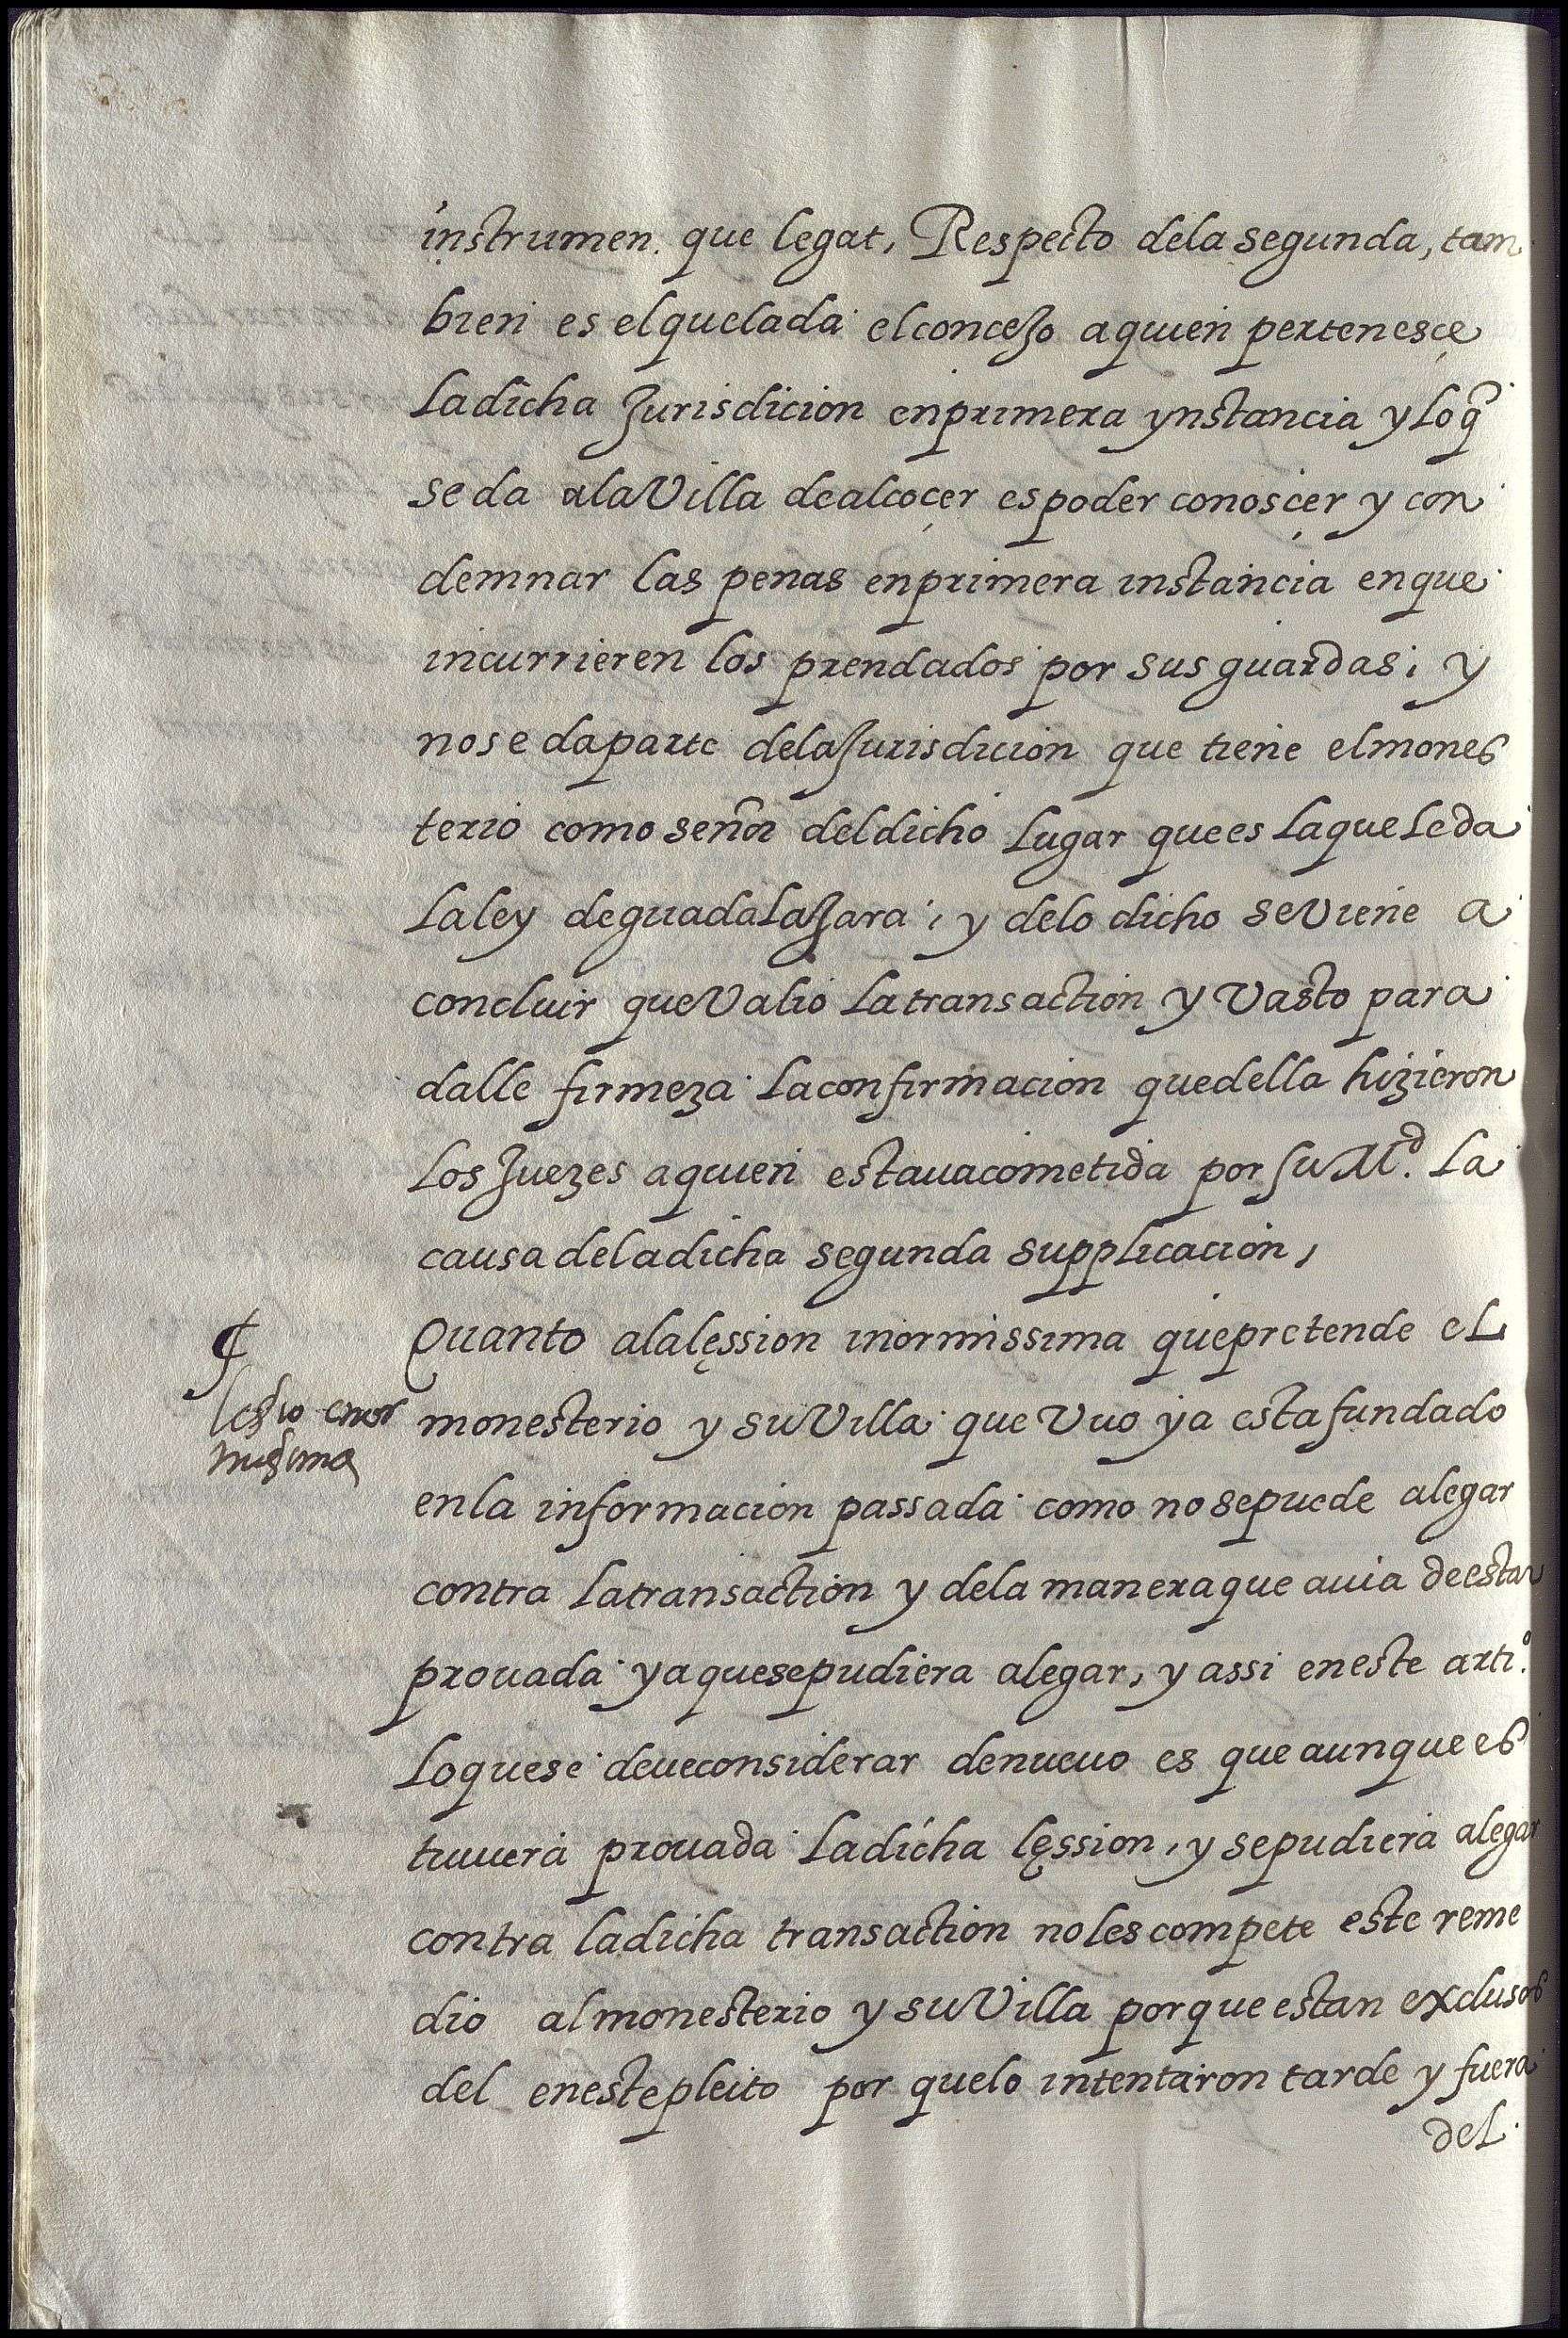 instrumen. que legat, Respecto dela segunda, tam
bien es elquelada elconcejo aquien pertenesçe
Ladicha Jurisdicion enprimera ynstancia y Lo q̃
se da alaVilla dealcoçer espoder conosçer y con
demnar las penas enprimera instancia enque
incurrieren los prendados por sus guardas, y
nose daparte delaJurisdicion que tiene elmones
terio como señor deldicho Lugar quees Laque Leda
Laley deguadalaJara, y delo dicho seviene a
concluir queValio Latransaction y Vasto para
dalle firmeza Laconfirmacion quedella hizieron
Los Juezes aquien estauacometida por su M.d La
causa deladicha segunda supplicacion,
Quanto alalęssion inormissima quepretende eL
Lesio enor
missima
monesterio y suVilla que Vuo ya estafundado
enla informacion passada como nosepuede alegar
contra Latransaction y dela maneraque auia deestar
prouada yaquesepudiera alegar, y assi eneste arti.o
Loquese deueconsiderar denueuo es que aunque es
tuuiera prouada Ladicha lęssion, y sepudiera alegar
contra ladicha transaction noles compete este reme
dio almonesterio y suVilla porque estan exclusos
del enestepleito por quelo intentaron tarde y fuera
del